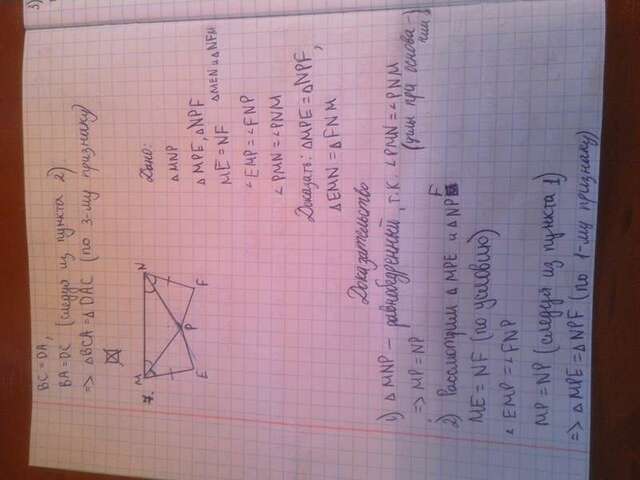 3)
BC = DA,
BA = DC (следуя из пункта 2)
=> △BCA = △DAC (по 3-му признаку)
7.
M N
E P F
Дано:
△MNP
△MPE, △NPF
ME = NF △MEN и △NFM
∠EMP = ∠FNP
∠PMN = ∠PNM
Доказать: △MPE = △NPF,
△EMN = △FNM
Доказательство
1) △MNP – равнобедренный, т.к. ∠PMN = ∠PNM
=> MP = NP (углы при основании)
2) Рассмотрим △MPE и △NPF
ME = NF (по условию)
∠EMP = ∠FNP
MP = NP (следуя из пункта 1)
=> △MPE = △NPF (по 1-му признаку)